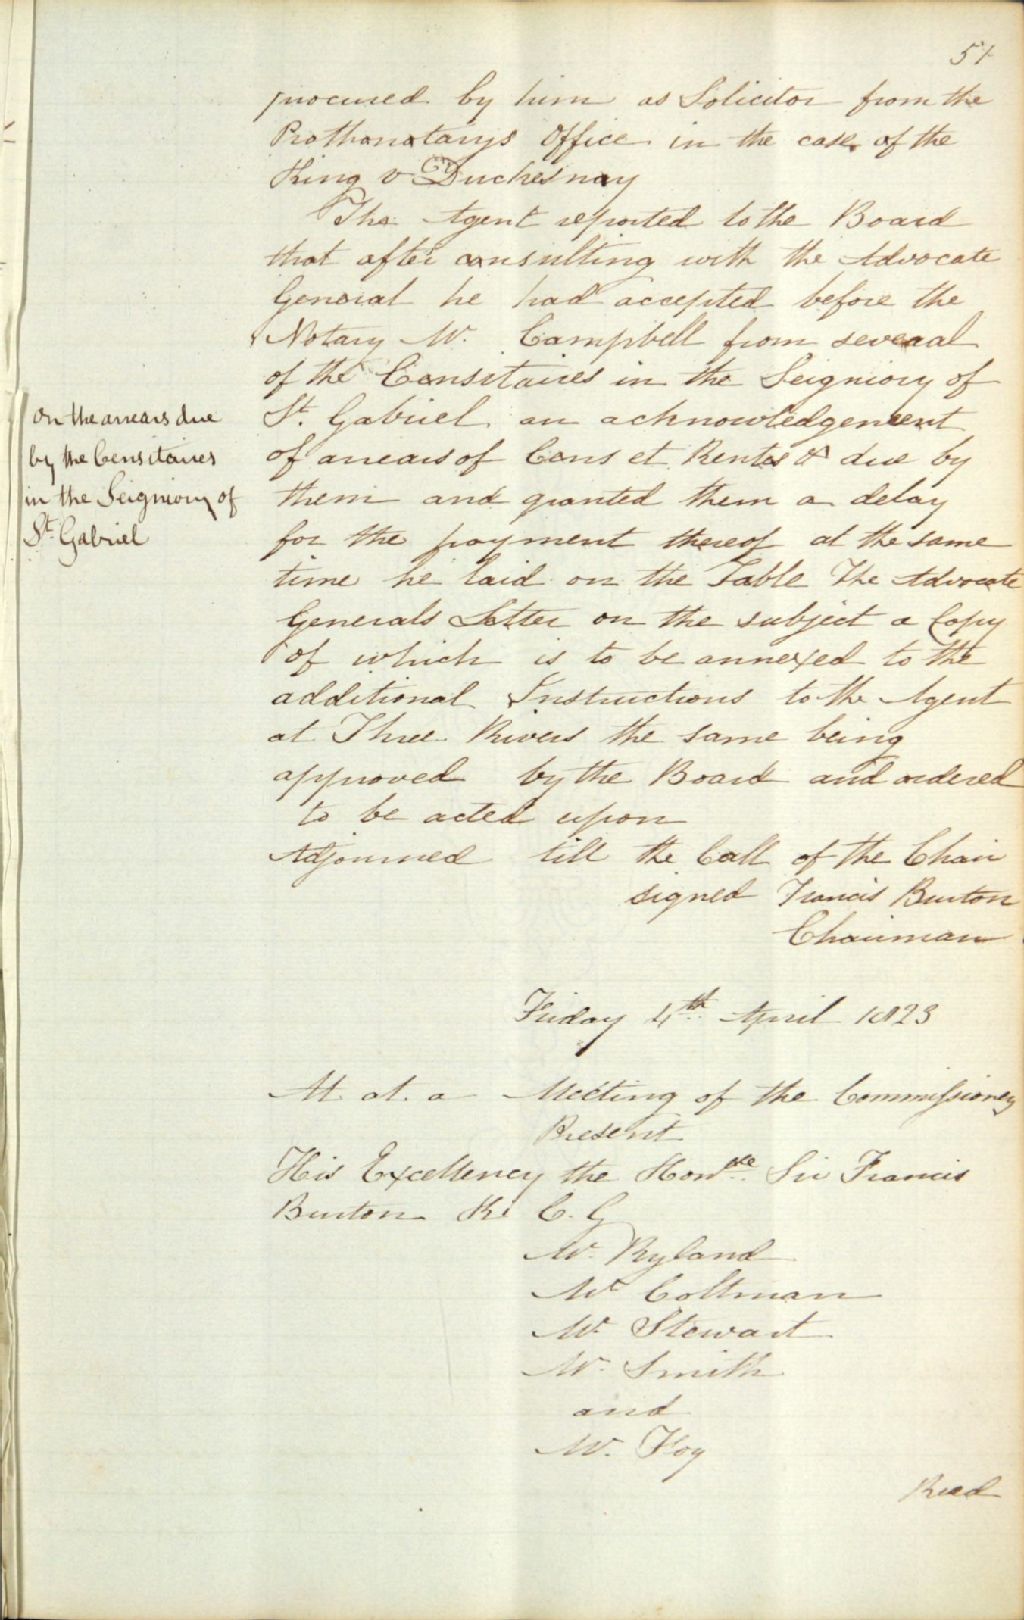 51
procured by him as Solicitor from the
Prothonotarys Office in the case of the
King v Duchesnay
The Agent reported to the Board
that after consulting with the Advocate
General he had accepted before the
Notary Mr. Campbell from several
of the Censitaires in the Seigniory of
St. Gabriel an acknowledgement
of arrears of Cens et Rentes & due by
them and granted them a delay
for the payment thereof at the same
time he laid on the Table The Advocate
Generals Letter on the subject a Copy
of which is to be annexed to the
additional Instructions to the Agent
at Three Rivers the same being
approved by the Board and ordered
to be acted upon
Adjourned till the Call of the Chair
signed Francis Burton
Chairman
on the arrears due
by the Censitaires
in the Seigniory of
St. Gabriel
Friday 4th April 1823
At at a Meeting of the Commissioners
Present
His Excellency the Honble. Sir Francis
Burton C. G
Mr. Ryland
Mr Coltman
Mr Stewart
Mr. Smith
and
Mr. Foy
Read